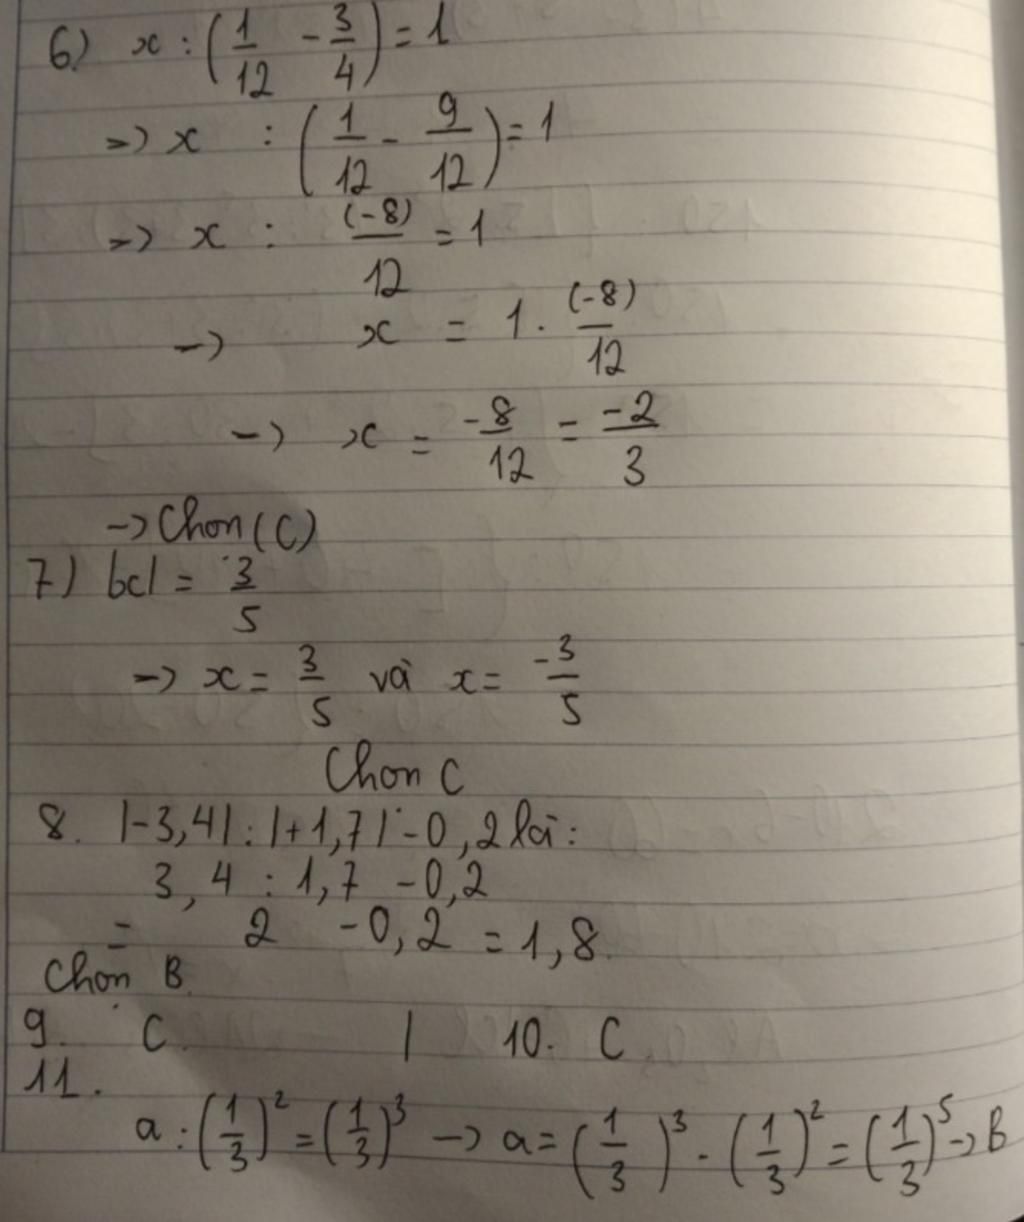 6) x : (1/12 - 3/4) = 1
=> x : (1/12 - 9/12) = 1
=> x : (-8)/12 = 1
-> x = 1 . (-8)/12
-> x = -8/12 = -2/3
-> Chọn (C)
7) |x| = 3/5
-> x = 3/5 và x = -3/5
Chọn C
8. |-3,4| : |+1,7| - 0,2 là:
3,4 : 1,7 - 0,2
= 2 - 0,2 = 1,8
Chọn B
9. C | 10. C
11.
a : (1/3)² = (1/3)³ -> a = (1/3)³ . (1/3)² = (1/3)⁵ -> B